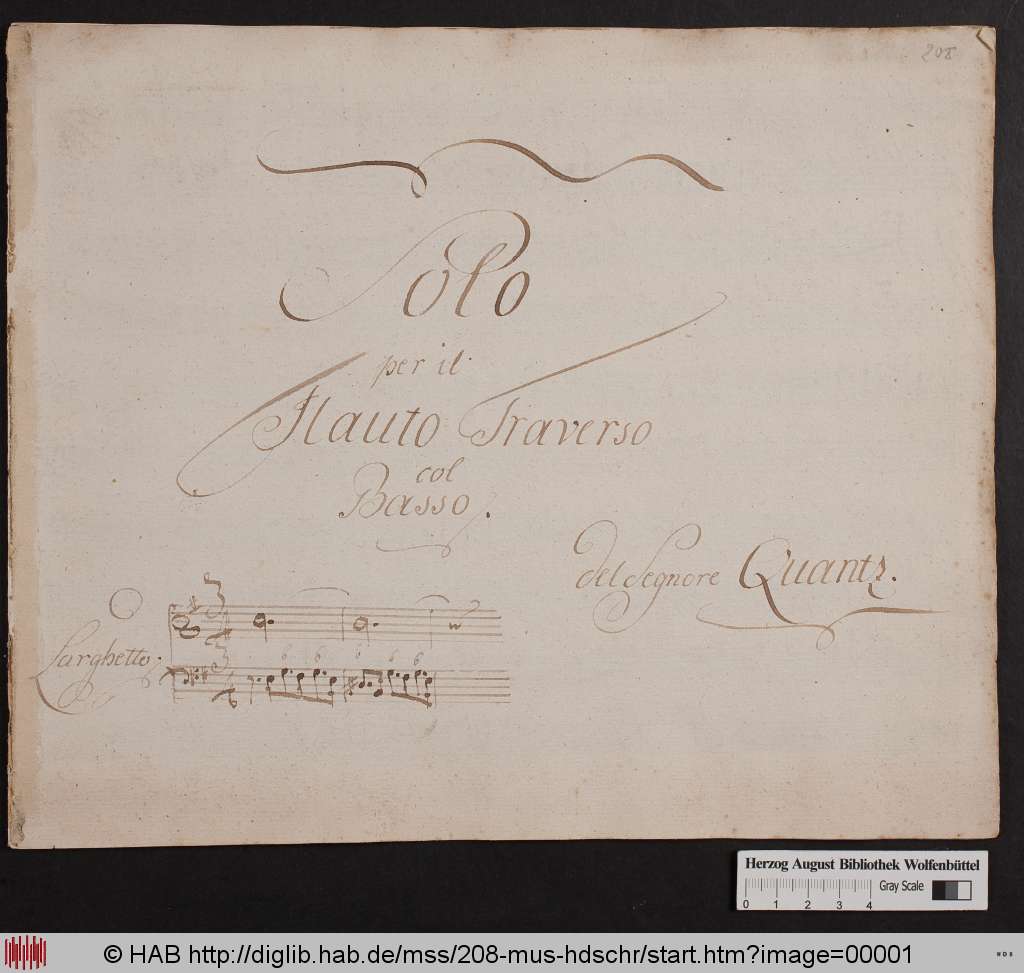 208
Solo
per il
Flauto Traverso
col
Basso.
del Segnore Quantz.
Larghetto.
6 6 6 6 6
Herzog August Bibliothek Wolfenbüttel
Gray Scale
0 1 2 3 4
© HAB http://diglib.hab.de/mss/208-mus-hdschr/start.htm?image=00001